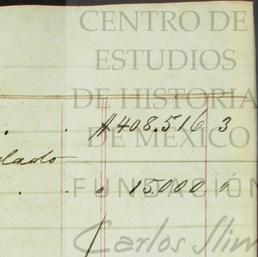 CENTRO DE
ESTUDIOS
DE HISTORIA
$408.516 3
DE MÉXICO
FUNDACIÓN
" 15000 "
Carlos Slim